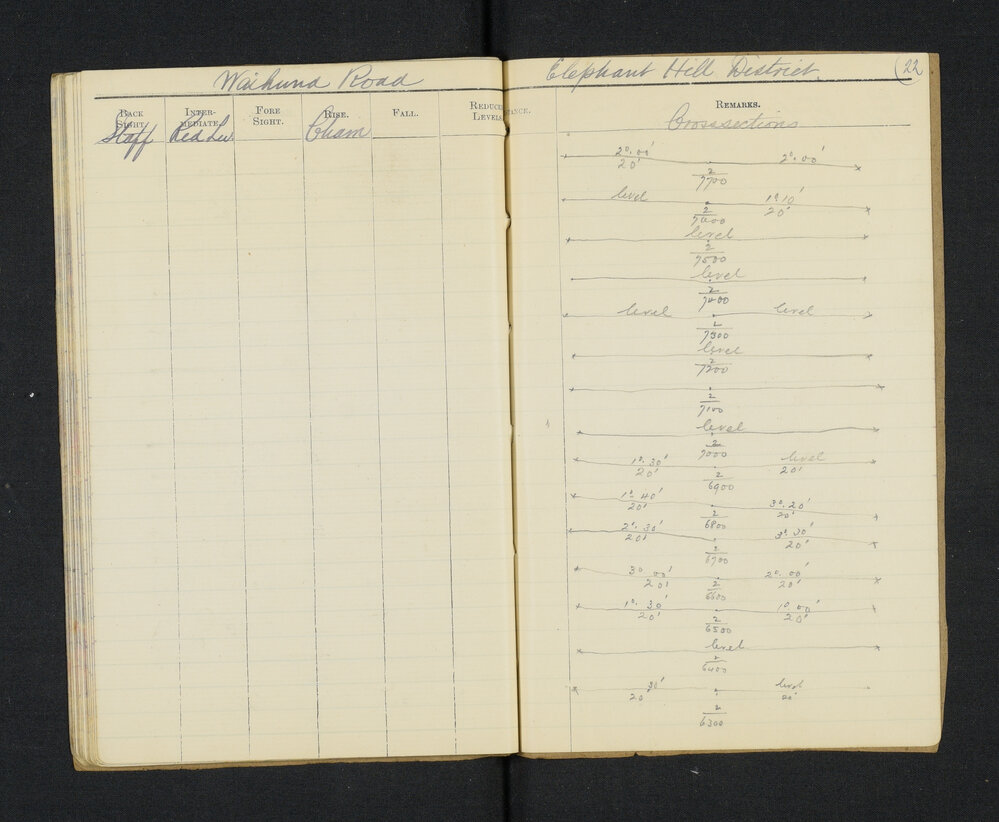 Waihuna Road
Elephant Hill District
22
BACK SIGHT. INTERMEDIATE. FORE SIGHT. RISE. FALL. REDUCED LEVELS. REMARKS.
Staff Red Lev. Cham
Cross sections
2°.00' 2°.00'
20'
2
7700
level 1°10'
20'
2
7600
level
2
7500
level
2
7400
level level
2
7300
level
2
7200
2
7100
level
2
7000
1°.30' level
20' 20'
2
6900
1°.40' 3°.20'
20' 20'
2
6800
2°.30' 3°.30'
20' 20'
2
6700
3° 00' 2°.00'
20' 20'
2
6600
1°.30' 1°.00'
20' 20'
2
6500
level
2
6400
30' level
20' 20'
2
6300